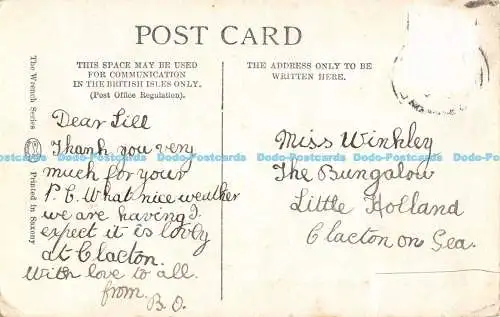 POST CARD
THIS SPACE MAY BE USED
FOR COMMUNICATION
IN THE BRITISH ISLES ONLY.
(Post Office Regulation).
THE ADDRESS ONLY TO BE
WRITTEN HERE.
The Wrench Series
Printed In Saxony
Dear Lill
Thank you very
much for your
P.C. What nice weather
we are having I
expect it is lovely
at Clacton.
With love to all.
from
B.O.
Miss Winkley
The Bungalow
Little Holland
Clacton on Sea.
Dodo-Postcards Dodo-Postcards Dodo-Postcards Dodo-Postcards